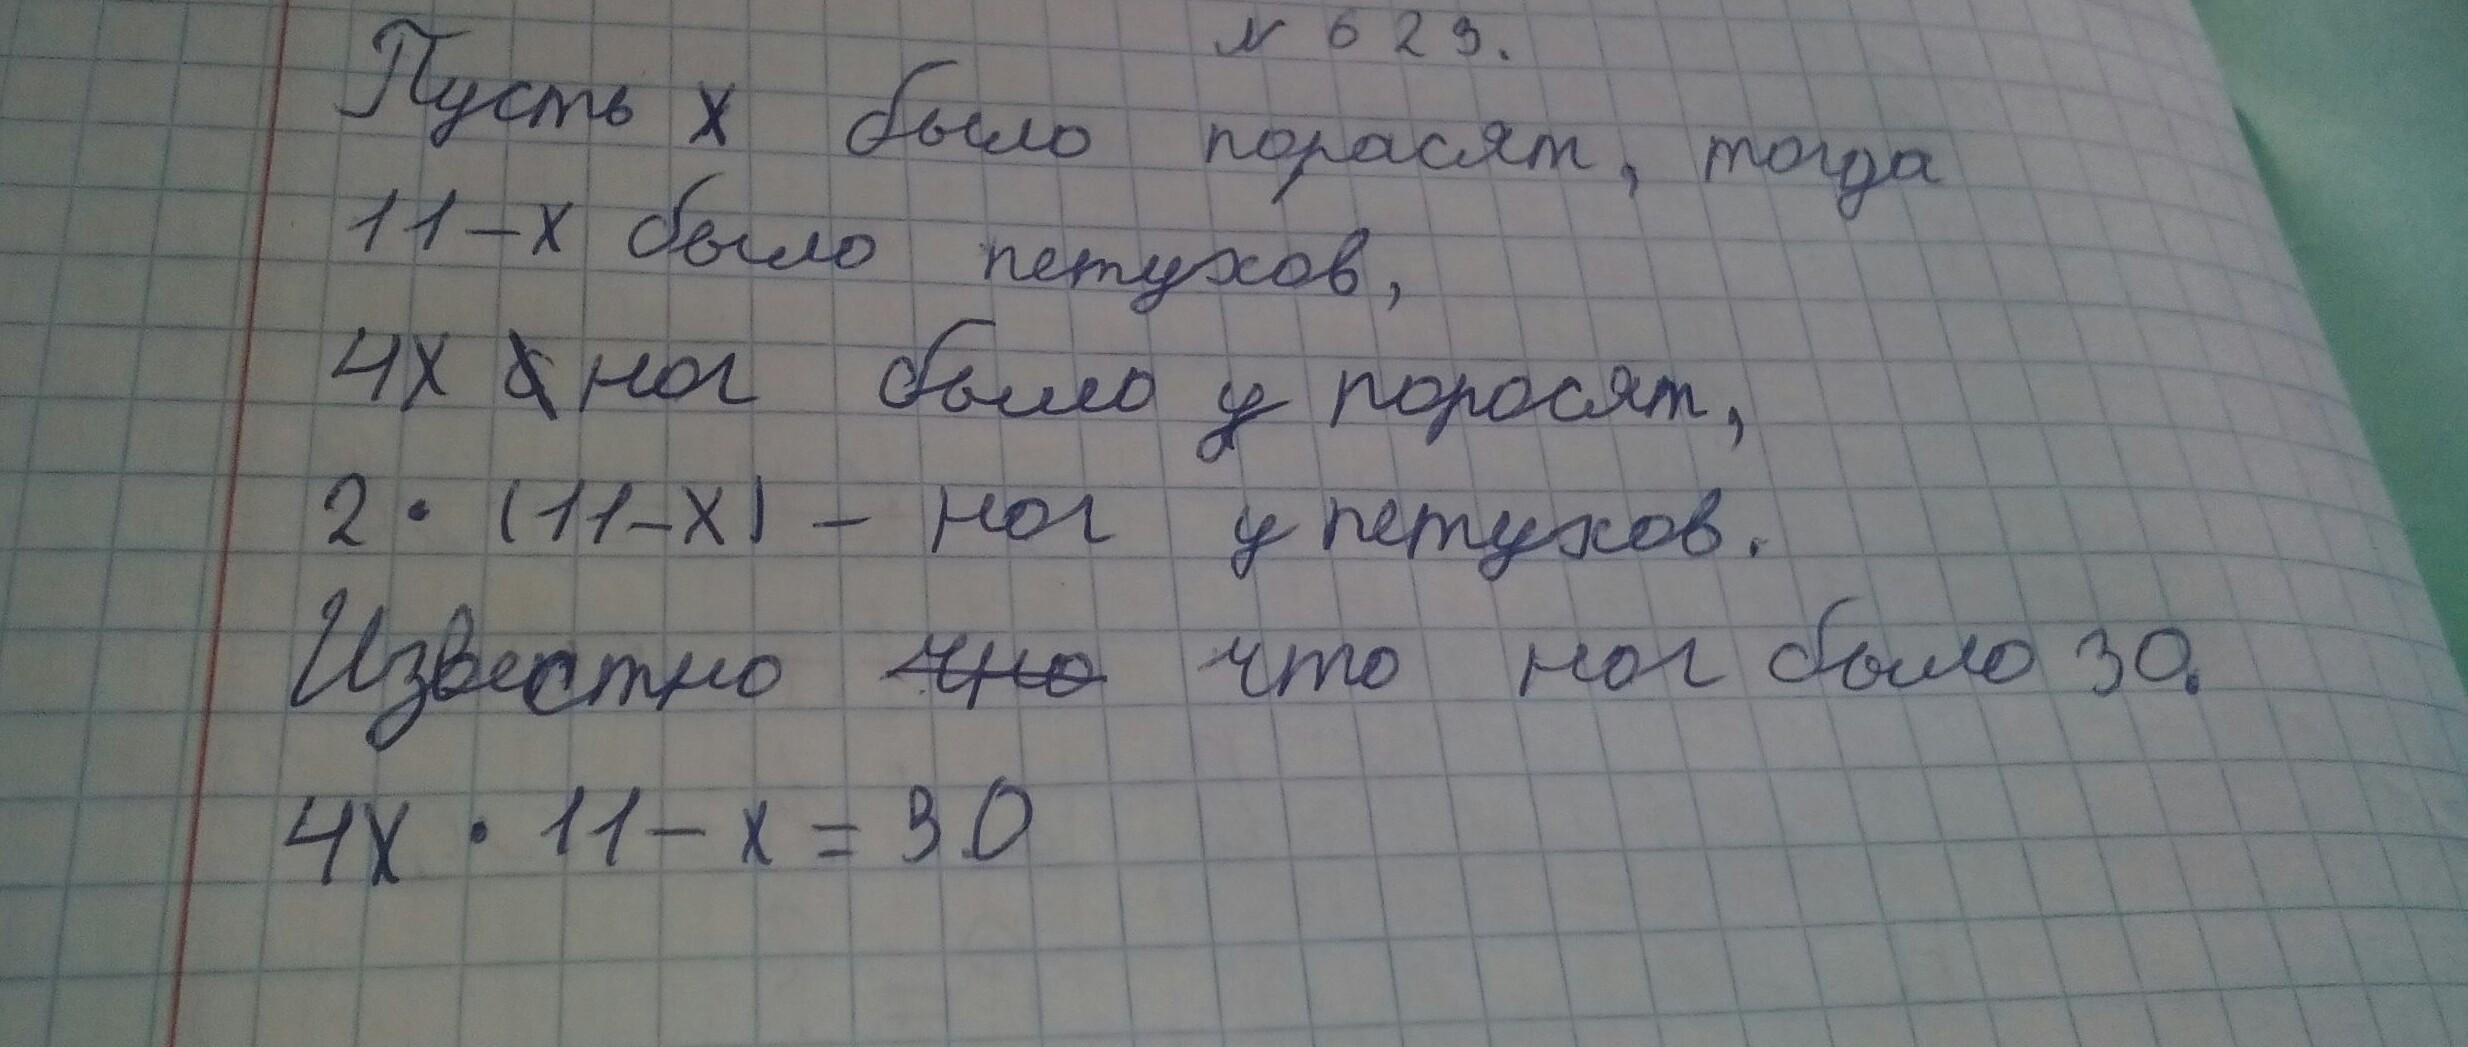 N 629.
Пусть х было порасят, тогда
11-х было петухов,
4х ног было у поросят,
2 · (11-х) - ног у петухов.
Известно чно что ног было 30.
4х · 11-х = 30